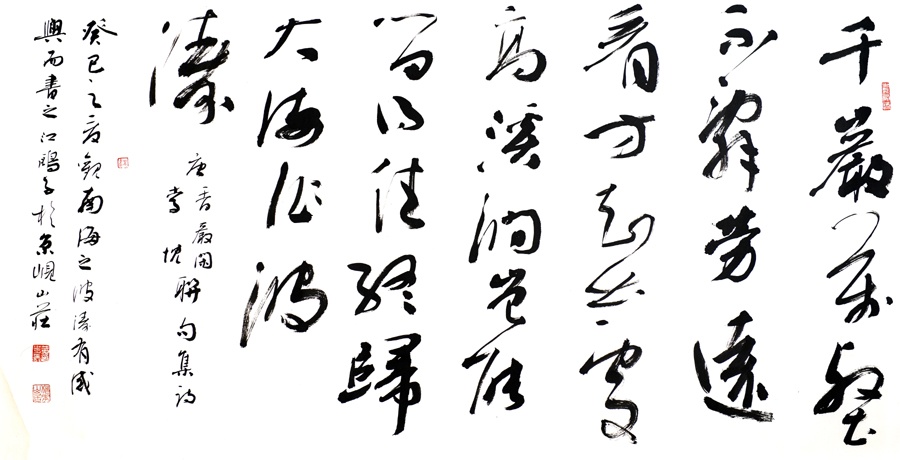 千巖萬壑
不辭勞遠
看方知出處
高溪澗豈能
留得住終歸
大海作波
濤
唐香嚴閑
忱
聯句集詩
癸巳之夏觀南海之波濤有感
興而書之江鷗子於京峴山莊